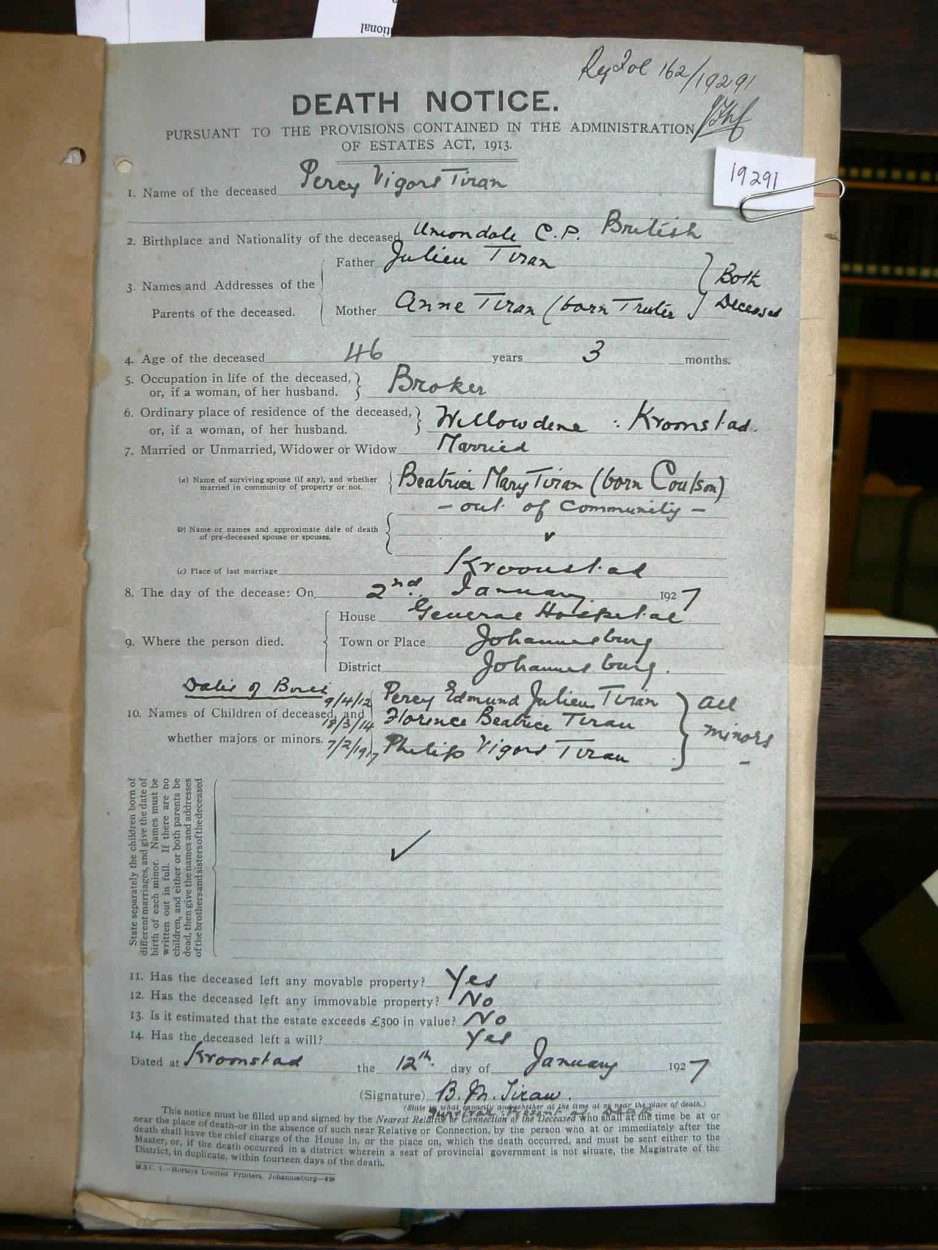 tional
Reg Fol 162/19291
DEATH NOTICE.
PURSUANT TO THE PROVISIONS CONTAINED IN THE ADMINISTRATION
OF ESTATES ACT, 1913.
19291
1. Name of the deceased Percy Vigors Tiran
2. Birthplace and Nationality of the deceased Uniondale C.P. British
3. Names and Addresses of the Parents of the deceased.
Father Julien Tiran
Mother Anne Tiran (born Truter
Both
Deceased
4. Age of the deceased 46 years 3 months.
5. Occupation in life of the deceased,
or, if a woman, of her husband. Broker
6. Ordinary place of residence of the deceased,
or, if a woman, of her husband. Willowdene : Kroonstad.
7. Married or Unmarried, Widower or Widow Married
(a) Name of surviving spouse (if any), and whether
married in community of property or not. Beatrice Mary Tiran (born Coulson)
- out of Community -
(b) Name or names and approximate date of death
of pre-deceased spouse or spouses.
(c) Place of last marriage Kroonstad
8. The day of the decease: On 2nd. January 1927
9. Where the person died.
House General Hospital
Town or Place Johannesburg
District Johannesburg.
Dates of Birth
10. Names of Children of deceased, and
whether majors or minors.
9/4/12 Percy Edmund Julien Tiran
18/3/14 Florence Beatrice Tiran
7/2/1917 Philip Vigors Tiran
All
minors
State separately the children born of
different marriages, and give the date of
birth of each minor. Names must be
written out in full. If there are no
children, and either or both parents be
dead, then give the names and addresses
of the brothers and sisters of the deceased
11. Has the deceased left any movable property? Yes
12. Has the deceased left any immovable property? No
13. Is it estimated that the estate exceeds £300 in value? No
14. Has the deceased left a will? Yes
Dated at Kroonstad the 12th. day of January 1927
(Signature) B. M. Tiran.
(State in what capacity and whether at the time at or near the place of death.)
This notice must be filled up and signed by the Nearest Relative or Connection of the Deceased who shall at the time be at or
near the place of death—or in the absence of such near Relative or Connection, by the person who at or immediately after the
death shall have the chief charge of the House in, or the place on, which the death occurred, and must be sent either to the
Master, or, if the death occurred in a district wherein a seat of provincial government is not situate, the Magistrate of the
District, in duplicate, within fourteen days of the death.
M.S.C. 1.—Hortors Limited Printers, Johannesburg—